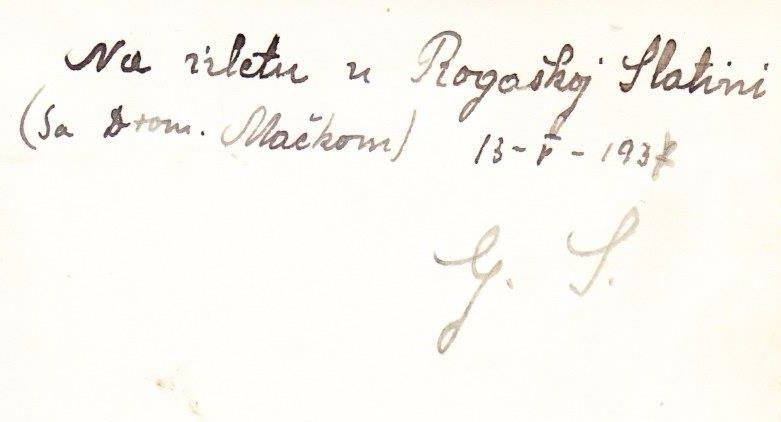 Na izletu u Rogaškoj Slatini
(Sa Drom. Mačkom) 13-V-1937
G. S.